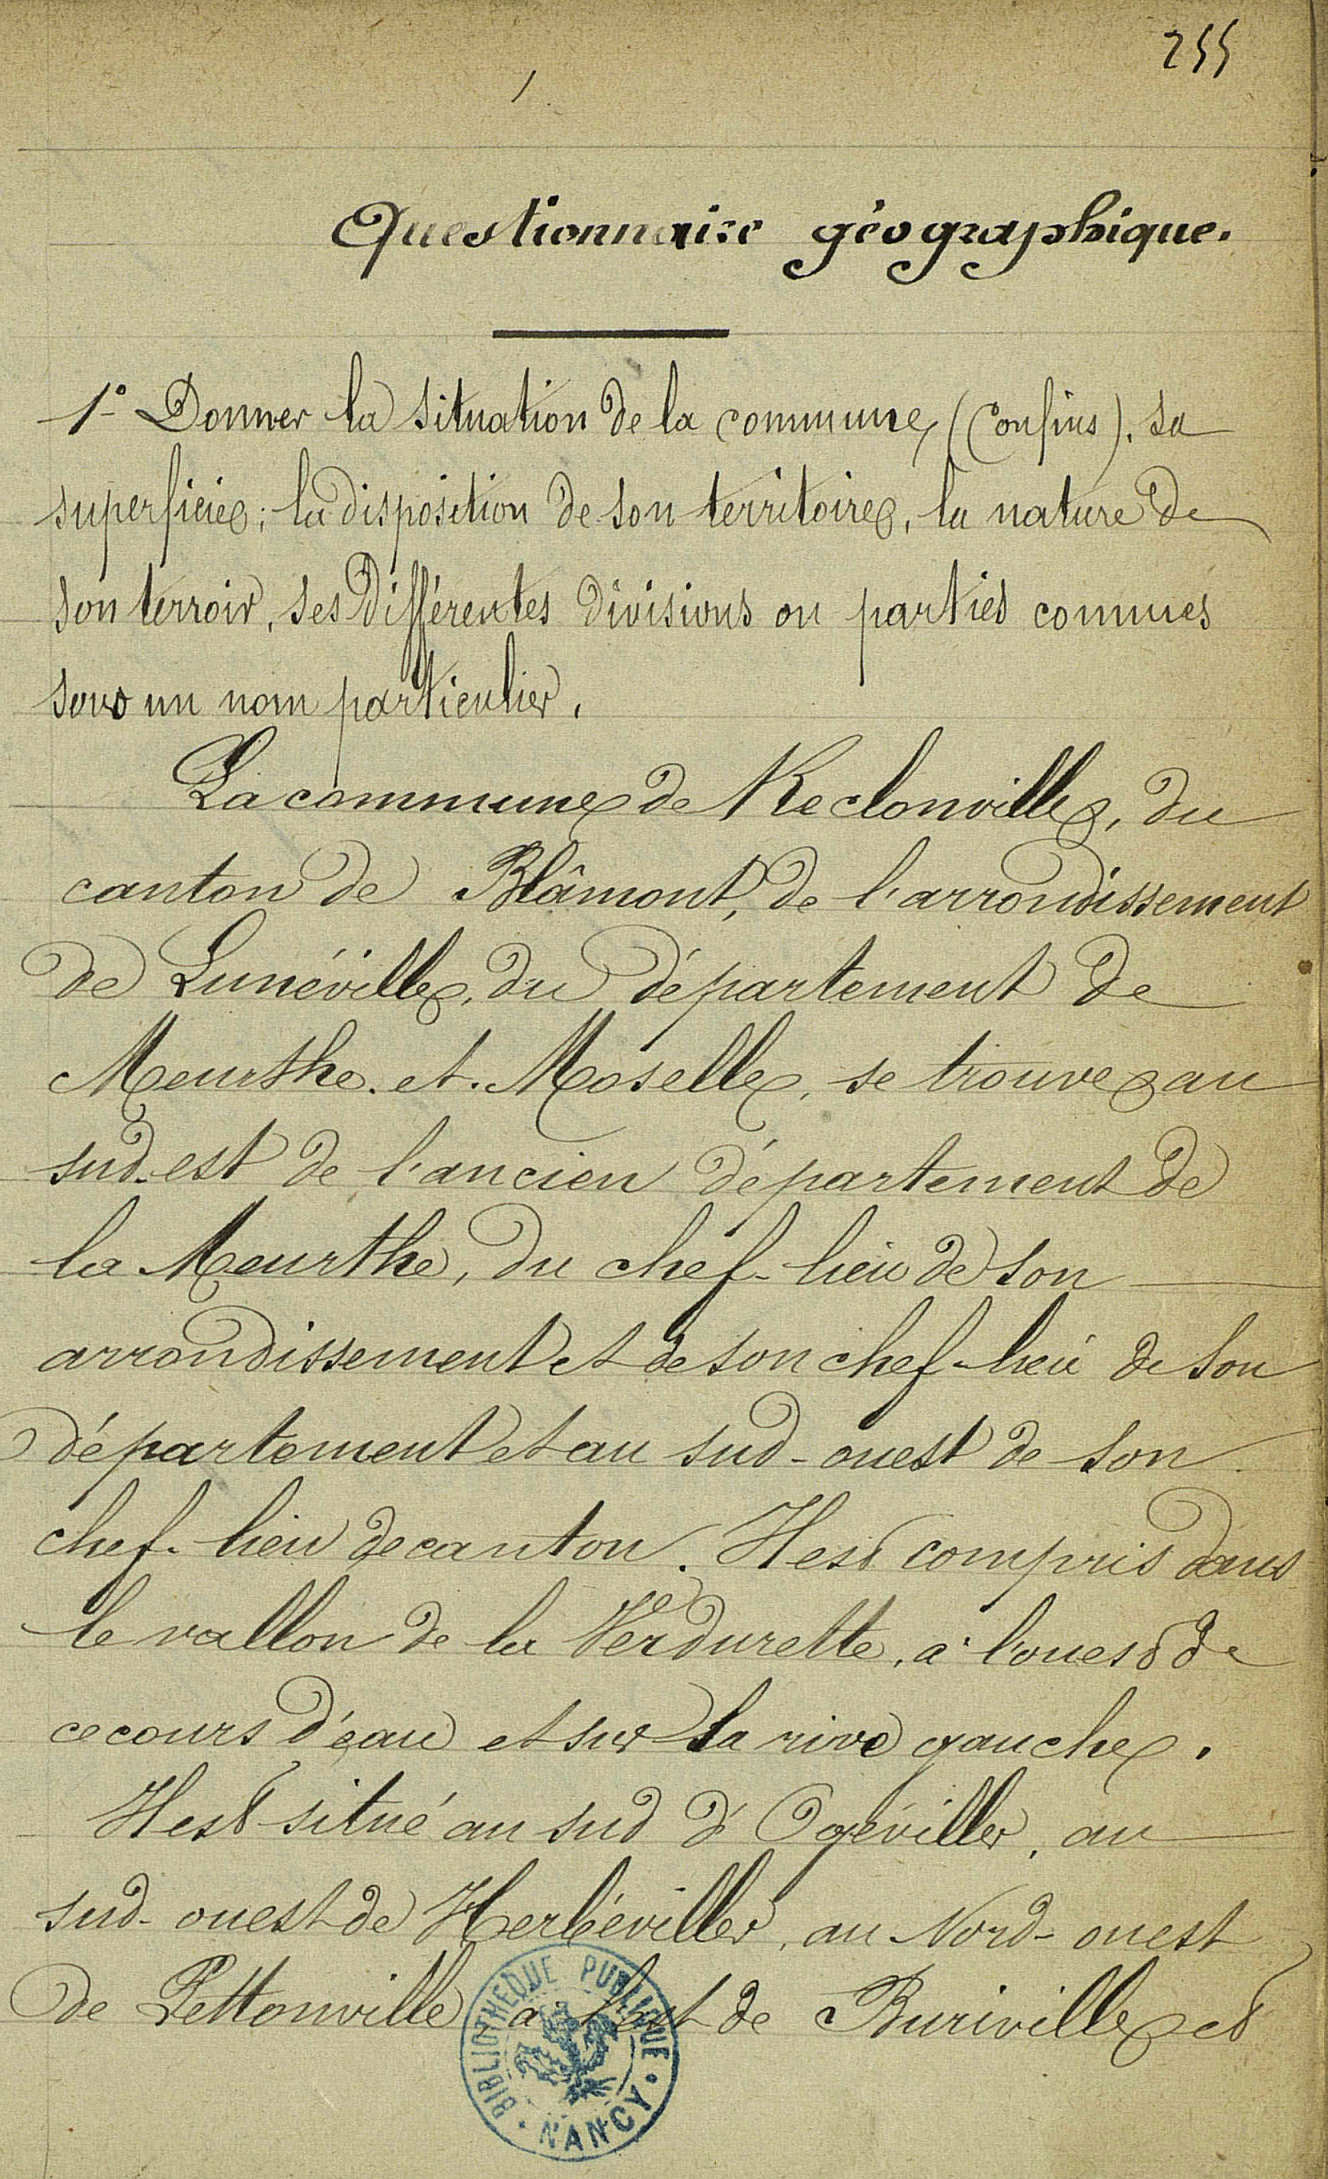 255
Questionnaire géographique.
1° Donner la situation de la commune, (Confins). sa
superficie; la disposition de son territoire, la nature de
son terroir, ses différentes divisions ou parties connues
sous un nom particulier.
La commune de Reclonville, du
canton de Blâmont, de l'arrondissement
de Lunéville, du département de
Meurthe-et-Moselle, se trouve au
sud-est de l'ancien département de
la Meurthe, du chef-lieu de son
arrondissement et de son chef-lieu de son
département et au sud-ouest de son
chef-lieu de canton. Il est compris dans
le vallon de la Verdurette, à l'ouest de
ce cours d'eau et sur la rive gauche.
Il est situé au sud d'Ogéviller, au
sud-ouest de Herbéviller, au Nord-ouest
de Pettonville à l'est de Buriville et
BIBLIOTHEQUE PUBLIQUE
NANCY